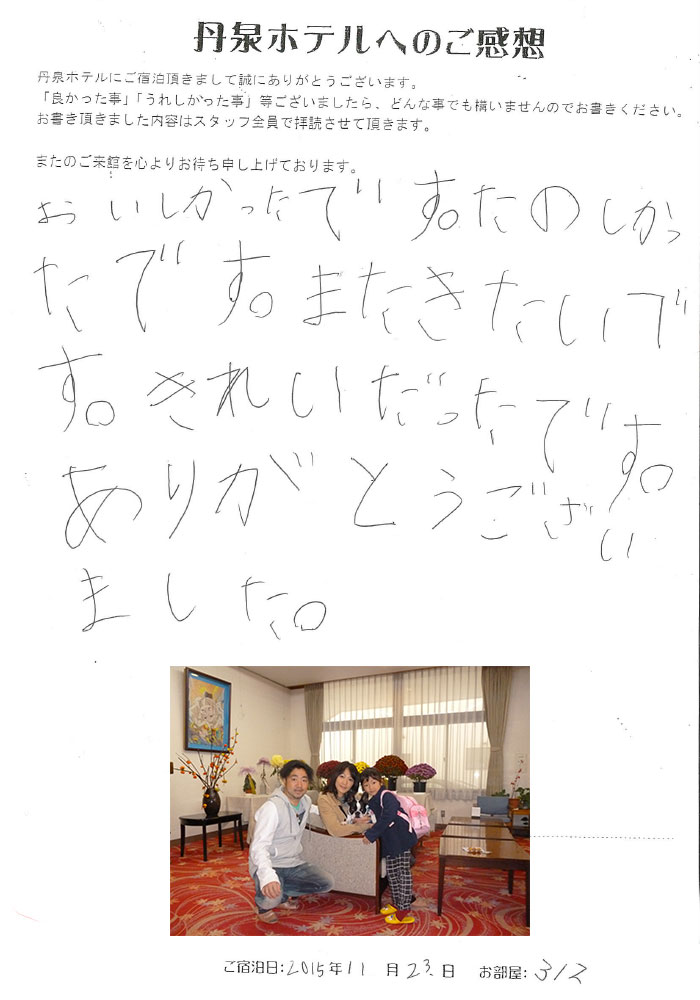 丹泉ホテルへのご感想
丹泉ホテルにご宿泊頂きまして誠にありがとうございます。
「良かった事」「うれしかった事」等ございましたら、どんな事でも構いませんのでお書きください。
お書き頂きました内容はスタッフ全員で拝読させて頂きます。
またのご来館を心よりお待ち申し上げております。
おいしかったです。たのしかっ
たです。またきたいで
す。きれいだったです。
ありがとうござい
ました。
ご宿泊日:2015年11月23日 お部屋:312